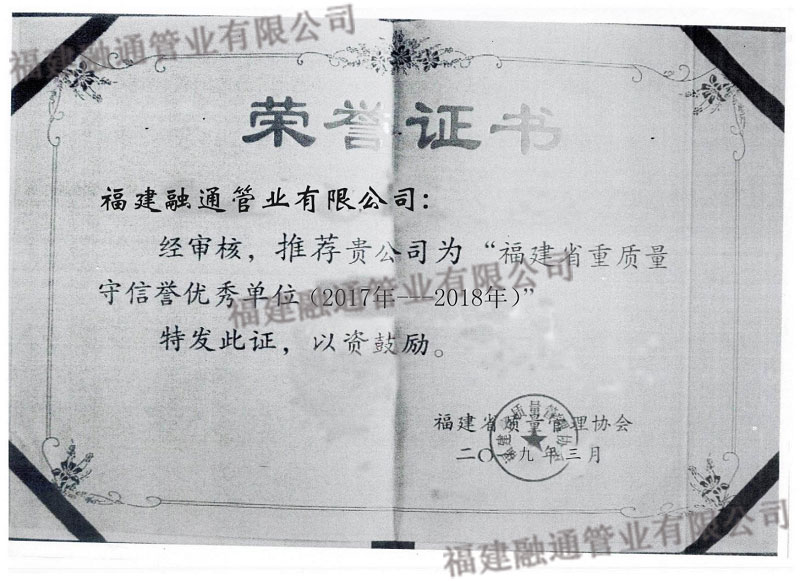 福建融通管业有限公司
荣誉证书
福建融通管业有限公司：
经审核，推荐贵公司为“福建省重质量
守信誉优秀单位（2017年---2018年）”
福建融通管业有限公司
特发此证，以资鼓励。
福建省质量管理协会
二〇一九年三月
福建融通管业有限公司